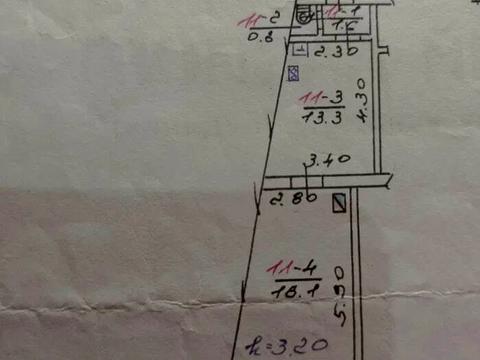 11-2
0.8
11-1
2.30
11-3
13.3
4.30
3.40
2.80
11-4
18.1
h=3.20